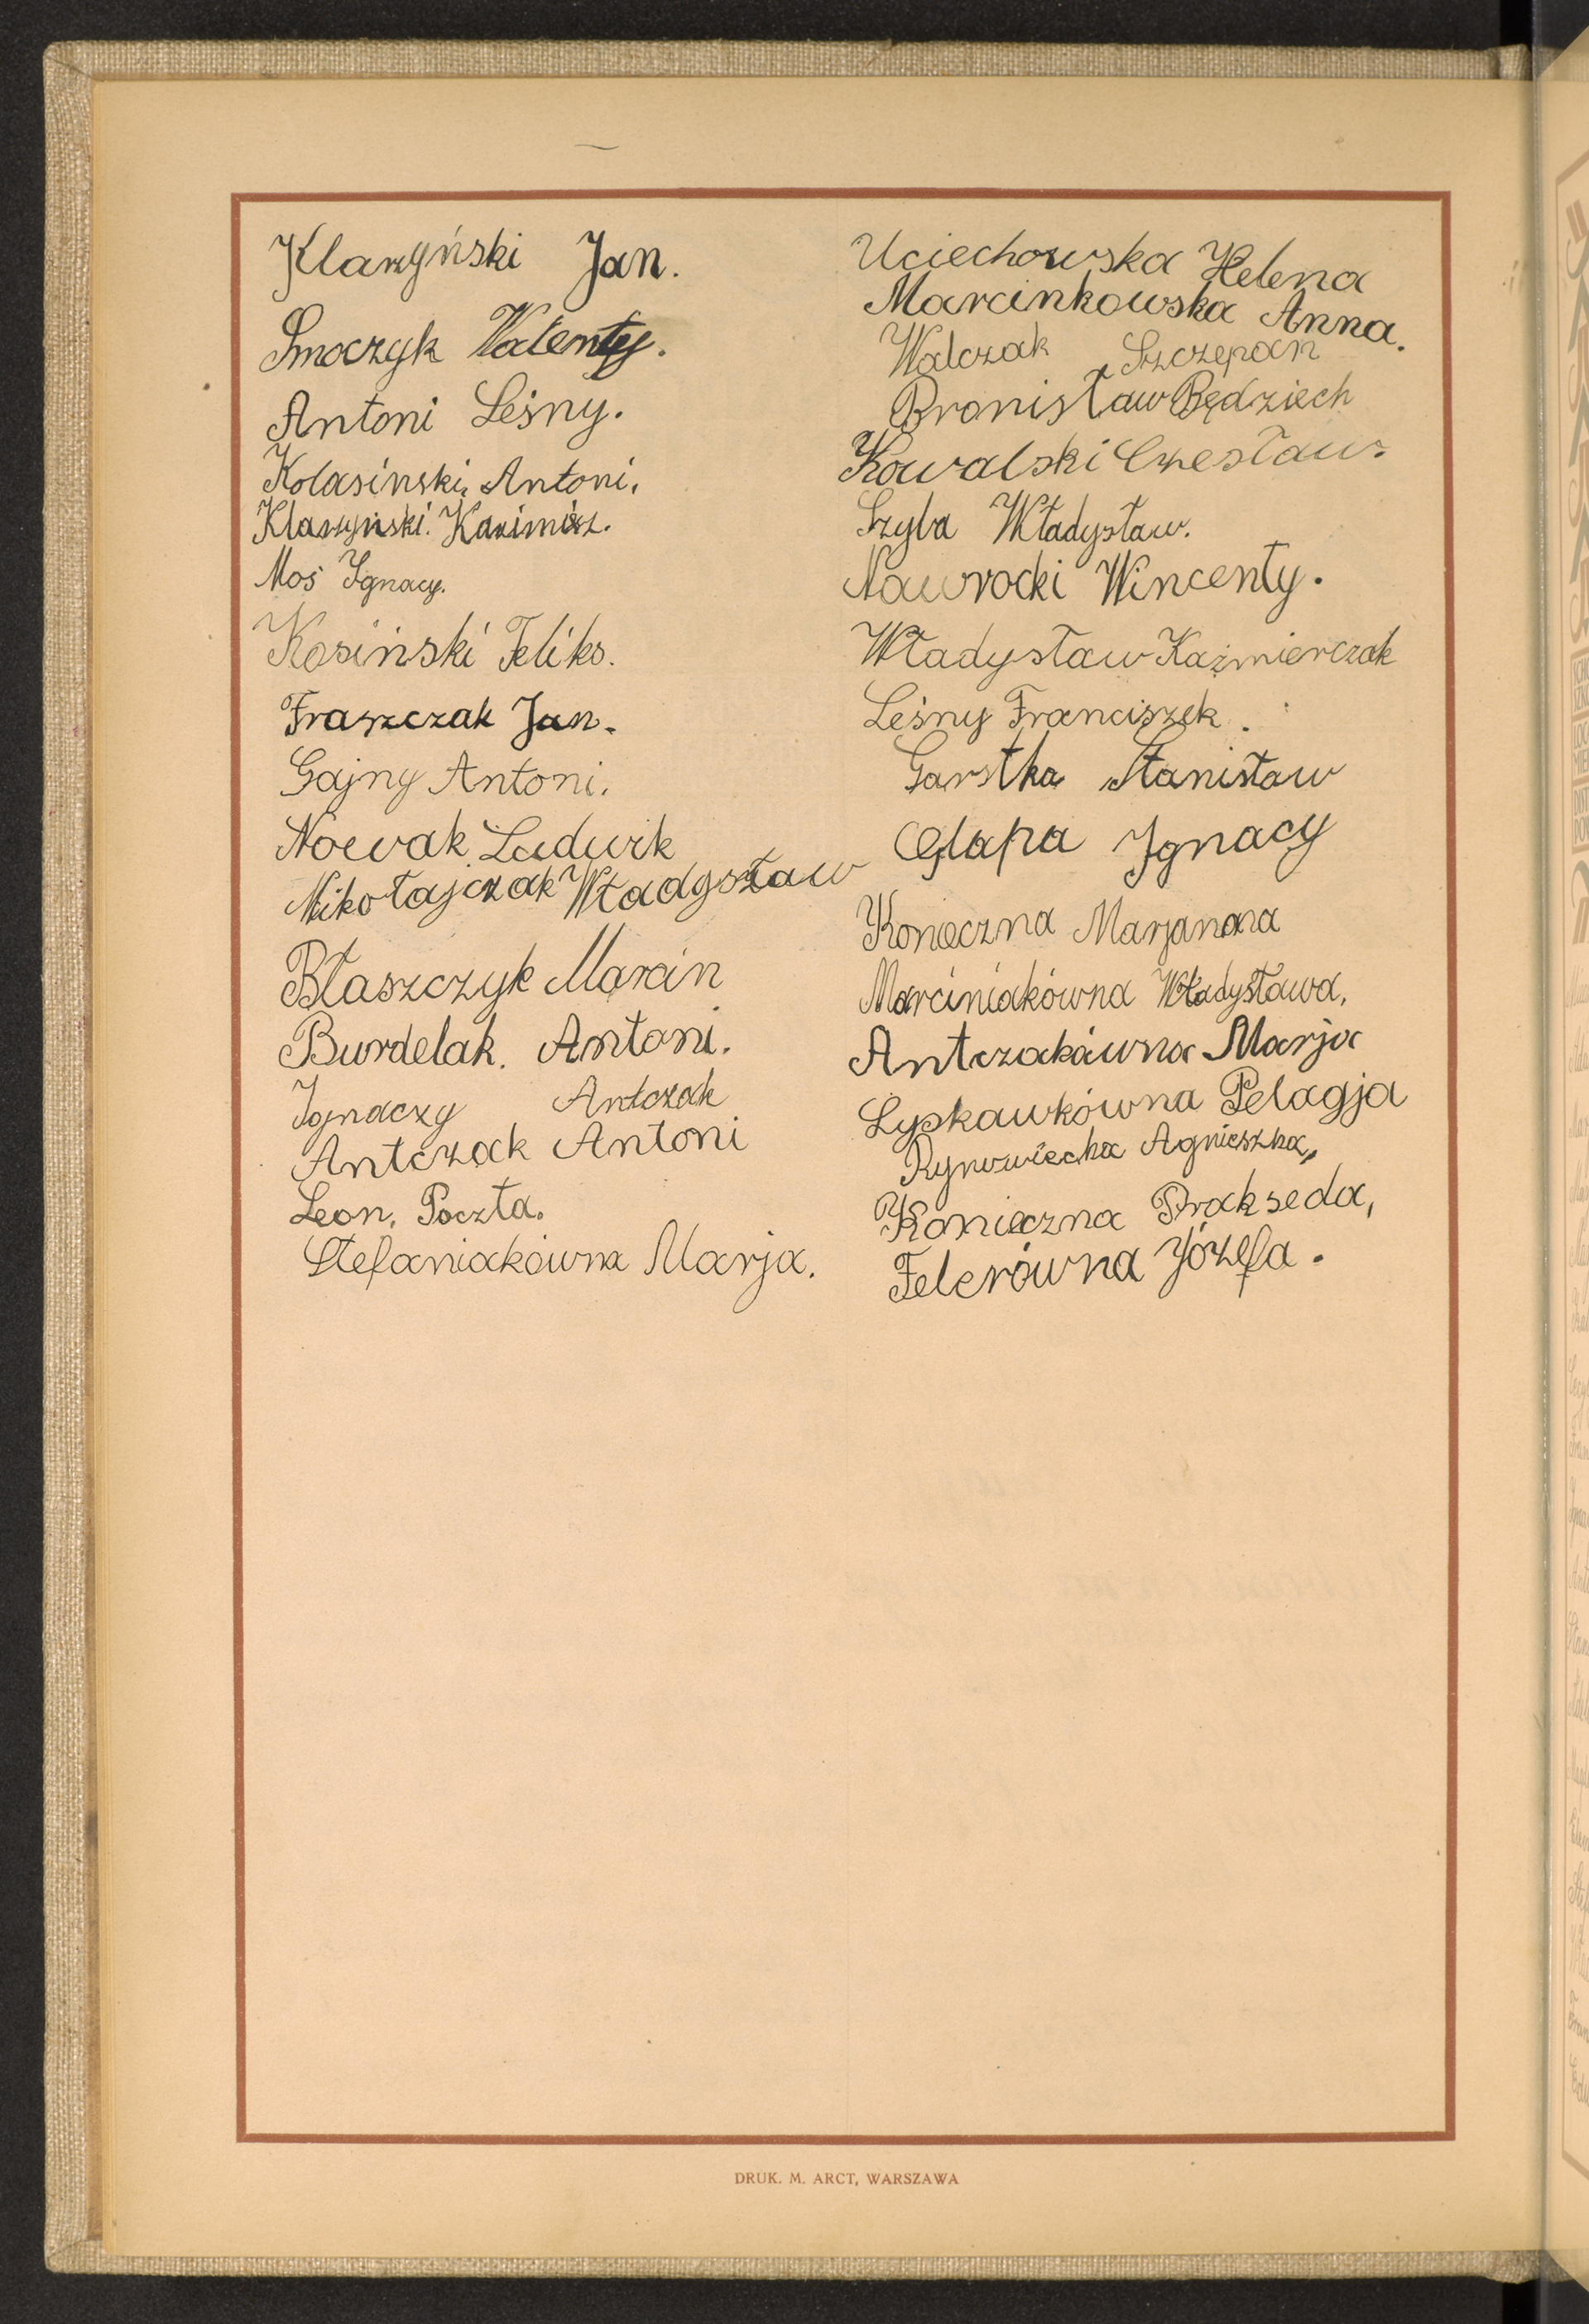 Klarzyński Jan.
Smoczyk Walenty.
Antoni Leśny.
Kolasinski, Antoni.
Klarzyński. Kazimisz.
Moś Ignacy.
Kosiński Feliks.
Fraszczak Jan.
Gajny Antoni.
Nowak Ludwik
Mikołajczak Władysław
Błaszczyk Marcin
Burdelak. Antoni.
Ignaczy Antczak
Antczak Antoni
Leon. Poczta.
Stefaniakówna Marja.
Uciechowska Helena
Marcinkowska Anna.
Walczak Szczepan
Bronisław Będziech
Kowalski Czesław.
Szyba Władysław.
Nawrocki Wincenty.
Władysław Kaźmierczak
Leśny Franciszek.
Garstka Stanisław
Glapa Ignacy
Konieczna Marjanna
Marciniakówna Władysława,
Antczakówna Marja
Łyskawkówna Pelagja
Agnieszka,,
Konieczna Prakseda,
Felerówna Józefa.
DRUK. M. ARCT, WARSZAWA